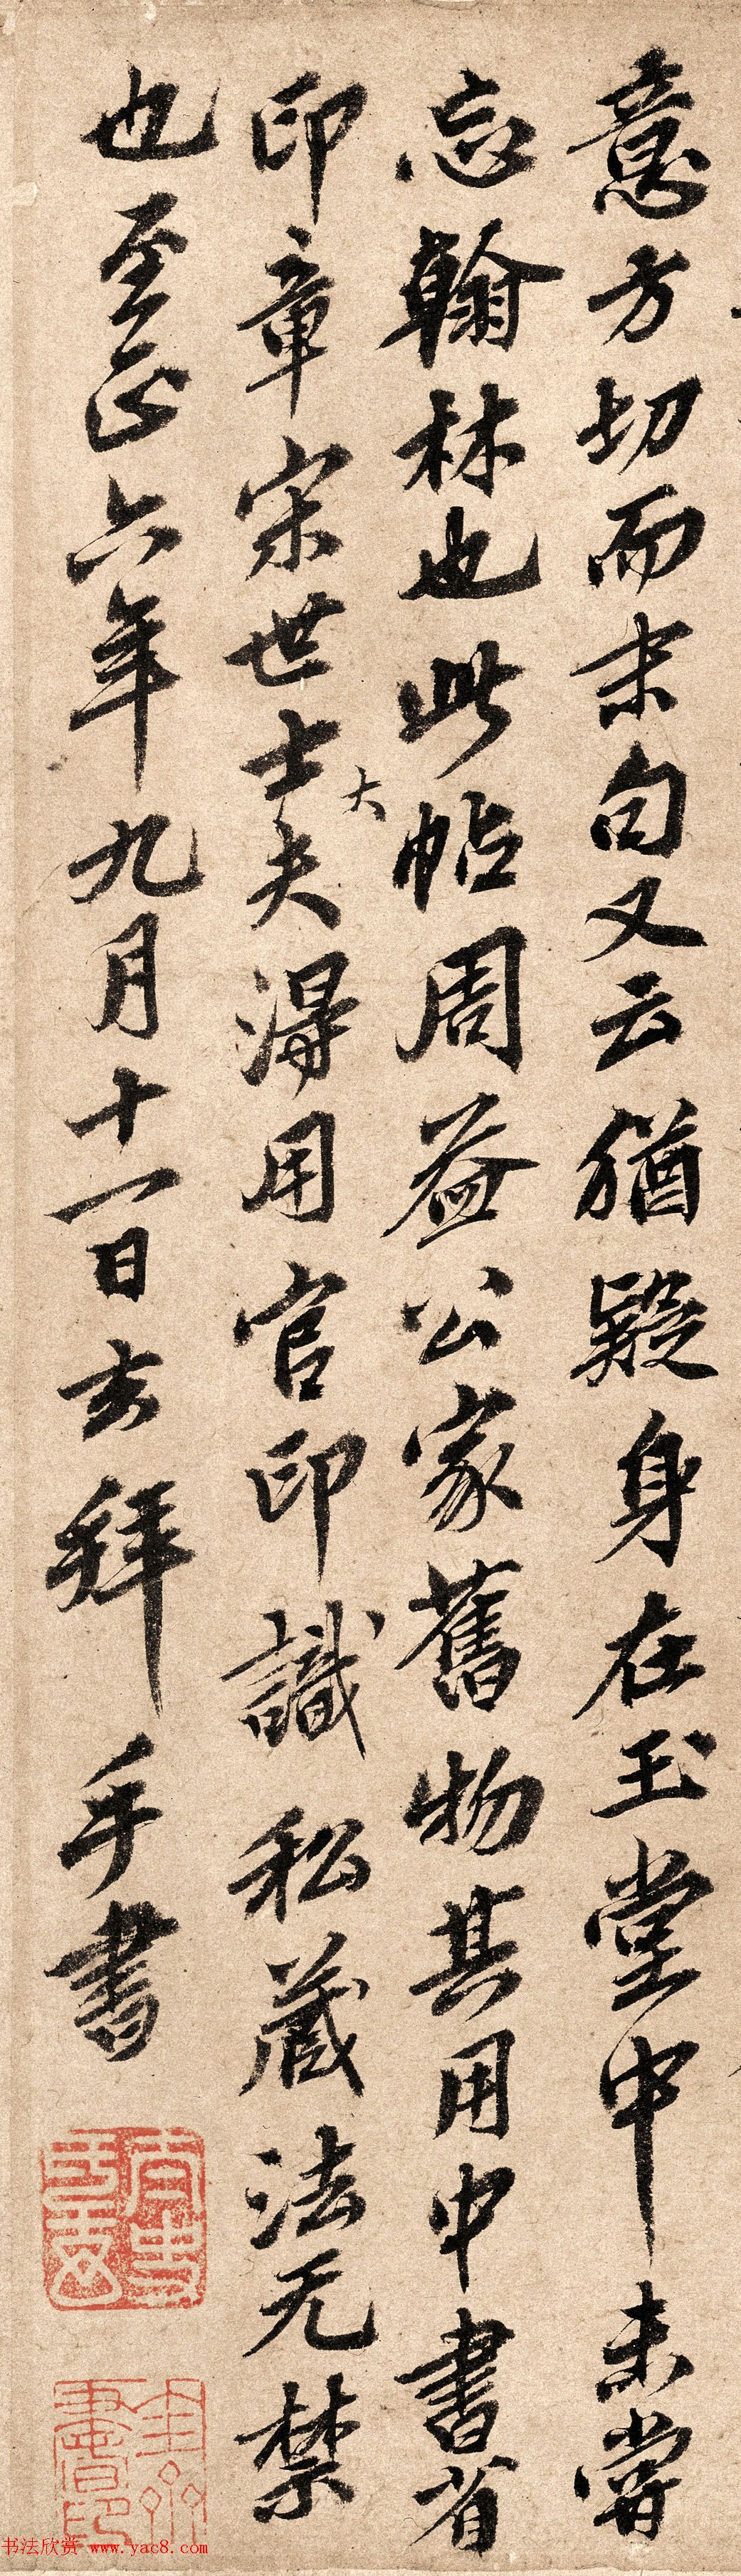 意方切而末句又云猶疑身在玉堂中未嘗
忘翰林也此帖周益公家舊物其用中書省
印章宋世士大夫得用官印識私藏法无禁
也至正六年九月十一日玄拜手書
书法欣赏 www.yac8.com